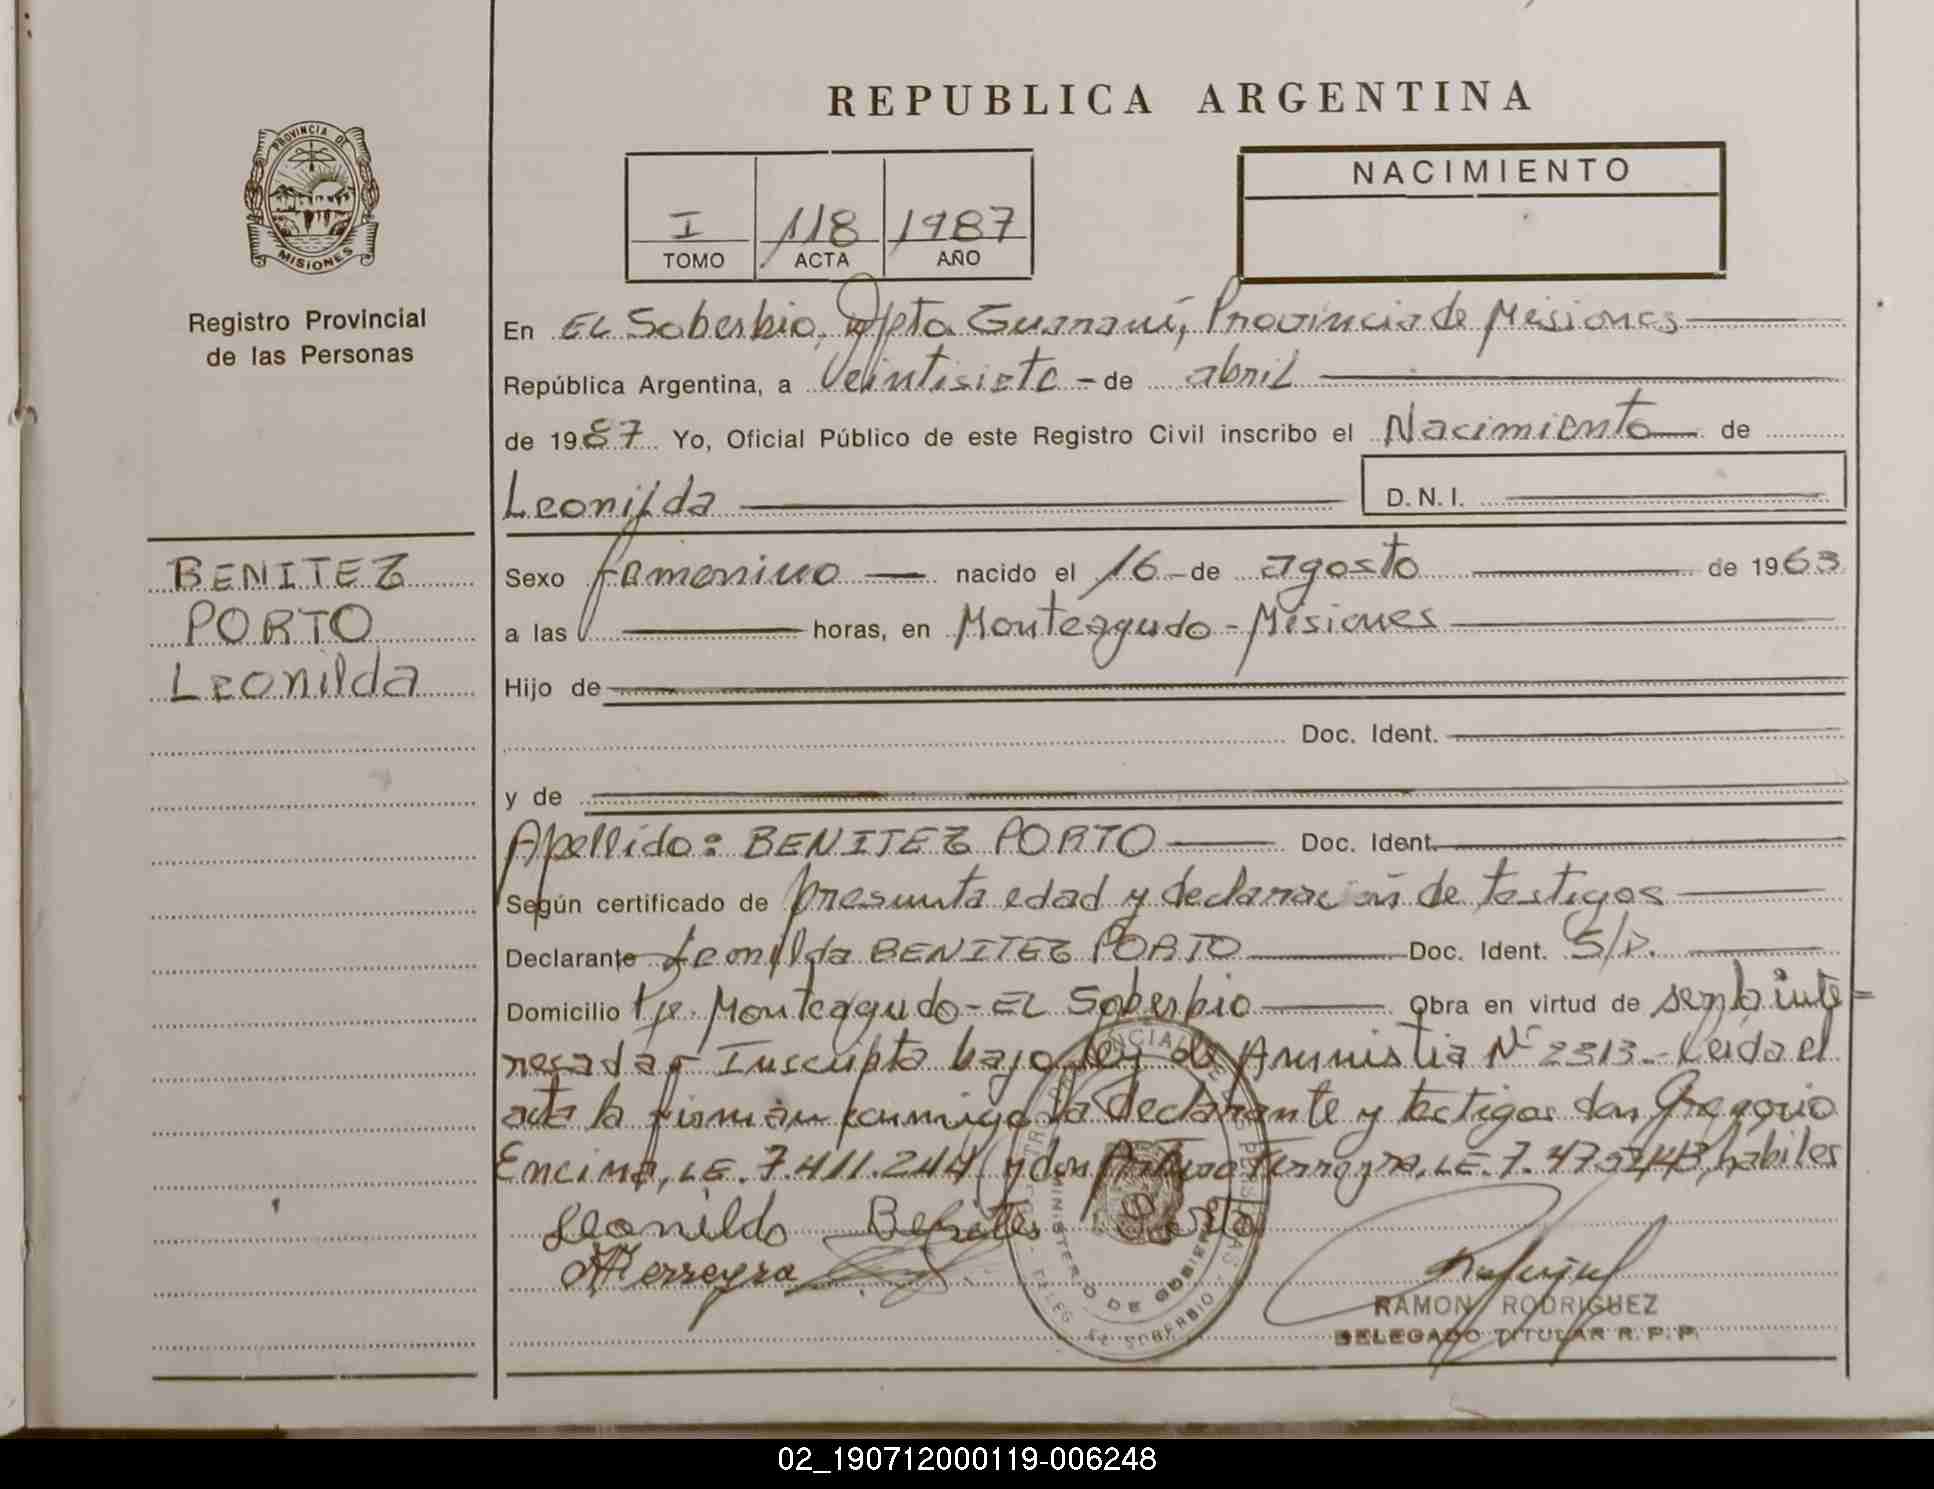 PROVINCIA DE
MISIONES
Registro Provincial
de las Personas
BENITEZ
PORTO
Leonilda
REPUBLICA ARGENTINA
I 118 1987
TOMO ACTA AÑO
NACIMIENTO
En EL Soberbio, Dpto Guaraní, Provincia de Misiones
República Argentina, a Veintisiete - de abril
de 1987 Yo, Oficial Público de este Registro Civil inscribo el Nacimiento de
Leonilda
D.N.I.
Sexo femenino nacido el 16 - de agosto de 1963
a las horas, en Monteagudo - Misiones
Hijo de
Doc. Ident.
y de
Apellido: BENITEZ PORTO Doc. Ident.
Según certificado de presunta edad y declaración de testigos
Declarante Leonilda BENITEZ PORTO Doc. Ident. S/D.
Domicilio Pje. Monteagudo - EL Soberbio Obra en virtud de ser la inte=
resada - Inscripta bajo ley de Amnistia Nº 2313.- Leída el
acta la firman conmigo la declarante y testigos don Gregorio
Encima, LE. 7.411.244 y don Arturo Ferreyra, LE. 7. habiles
Leonilda Benites Porto
AFerreyra
MINISTERIO DE GOBIERNO
DELEG. EL SOBERBIO
RAMON RODRIGUEZ
DELEGADO TITULAR R.P.P.
02_190712000119-006248